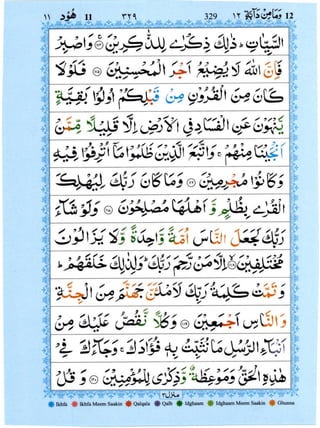 ١١ هُوْد 11 ٣٢٩ 329 وَمَا مِنْ دَآبَّةٍ ١٢ 12
السَّيِّاٰتِ ؕ ذٰلِكَ ذِكْرٰى لِلذّٰكِرِيْنَ ﴿۱۱۴﴾ وَاصْبِرْ
فَاِنَّ اللّٰهَ لَا يُضِيْعُ اَجْرَ الْمُحْسِنِيْنَ ﴿۱۱۵﴾ فَلَوْلَا
كَانَ مِنَ الْقُرُوْنِ مِنْ قَبْلِكُمْ اُولُوْا بَقِيَّةٍ
يَّنْهَوْنَ عَنِ الْفَسَادِ فِى الْاَرْضِ اِلَّا قَلِيْلًا مِّمَّنْ
اَنْجَيْنَا مِنْهُمْ ۚ وَاتَّبَعَ الَّذِيْنَ ظَلَمُوْا مَاۤ اُتْرِفُوْا فِيْهِ
وَكَانُوْا مُجْرِمِيْنَ ﴿۱۱۶﴾ وَمَا كَانَ رَبُّكَ لِيُهْلِكَ
الْقُرٰى بِظُلْمٍ وَّاَهْلُهَا مُصْلِحُوْنَ ﴿۱۱۷﴾ وَلَوْ شَآءَ
رَبُّكَ لَجَعَلَ النَّاسَ اُمَّةً وَّاحِدَةً وَّلَا يَزَالُوْنَ
مُخْتَلِفِيْنَ ﴿۱۱۸﴾ اِلَّا مَنْ رَّحِمَ رَبُّكَ ؕ وَلِذٰلِكَ خَلَقَهُمْ ؕ
وَتَمَّتْ كَلِمَةُ رَبِّكَ لَاَمْلَئَنَّ جَهَنَّمَ مِنَ الْجِنَّةِ
وَالنَّاسِ اَجْمَعِيْنَ ﴿۱۱۹﴾ وَكُلًّا نَّقُصُّ عَلَيْكَ مِنْ
اَنْۢبَآءِ الرُّسُلِ مَا نُثَبِّتُ بِهٖ فُؤَادَكَ ۚ وَجَآءَكَ فِىْ
هٰذِهِ الْحَقُّ وَمَوْعِظَةٌ وَّذِكْرٰى لِلْمُؤْمِنِيْنَ ﴿۱۲۰﴾ وَقُلْ
منزل ٣
Ikhfa Ikhfa Meem Saakin Qalqala Qalb Idghaam Idghaam Meem Saakin Ghunna